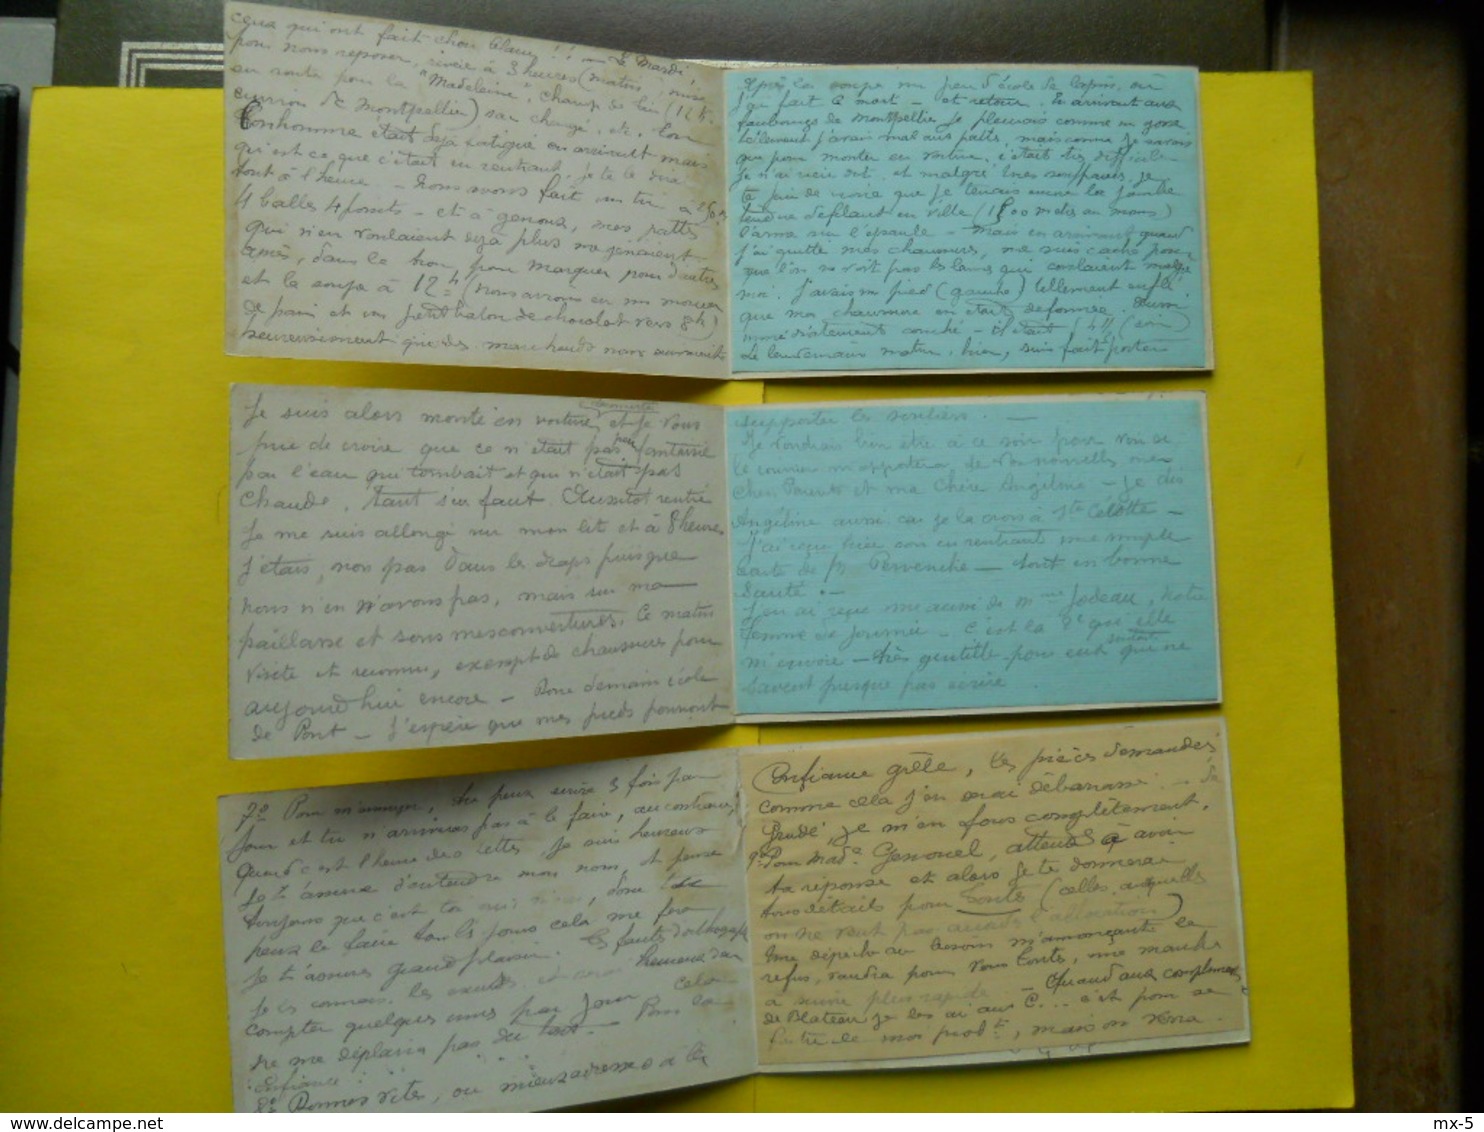 ceux qui ont fait chou blanc !! — Le Mardi,
pour nous reposer, réveil à 3 heures (matin), mise
en route pour la "Madeleine", champ de tir (12 k.
environ de Montpellier) sac chargé, etc. Ton
bonhomme était déjà fatigué en arrivant mais
qu'est ce que c'était en rentrant, je te le dirai
tout à l'heure. — Nous avons fait un tir à 250 m
4 balles 4 points — et à genoux, mes pattes
qui n'en voulaient déjà plus me gênaient
après, dans le trou pour marquer pour d'autres
et la soupe à 12 h (nous avions eu un morceau
de pain et un petit bâton de chocolat vers 8 h)
heureusement que des marchands nous suivaient
Après la soupe un peu d'école de tapins, où
j'ai fait le mort — et retour. En arrivant aux
faubourgs de Montpellier je pleurais comme un gosse
tellement j'avais mal aux pattes, mais comme je savais
que pour monter en voiture, c'était très difficile
je n'ai rien dit, et malgré mes souffrances, je
te prie de croire que je tenais encore la jambe
tendue défilant en ville (1800 mètres au moins)
l'arme sur l'épaule — mais en arrivant quand
j'ai quitté mes chaussures, me suis caché pour
que l'on ne voit pas les larmes qui coulaient malgré
moi. J'avais un pied (gauche) tellement enflé
que ma chaussure en était déformée.
immédiatement couché — il était 5 h ½ (soir)
Le lendemain matin, hier, suis fait porter
Je suis alors monté en voiture découverte et je vous
prie de croire que ce n'était pas peu fantaisie
par l'eau qui tombait et qui n'était pas
chaude, tant s'en faut. Aussitôt rentré
je me suis allongé sur mon lit et à 8 heures
j'étais, non pas dans les draps puisque
nous n'en n'avons pas, mais sur ma
paillasse et sous mes couvertures. Ce matin
visite et reconnu, exempt de chaussures pour
aujourd'hui encore — Pour demain école
de Pont — J'espère que mes pieds pourront
supporter les souliers. —
Je voudrais bien être à ce soir pour voir si
le courrier m'apportera de vos nouvelles mes
chers Parents et ma Chère Angéline — je dis
Angéline aussi car je la crois à Ste Célotte —
J'ai reçu hier soir en rentrant une simple
carte de M Pervenche — tout en bonne
santé. —
J'en ai reçu une aussi de Mme Jodeau, notre
femme de journée — c'est la 2e que elle
m'envoie — très gentille pour ceux qui ne
savent surtout presque pas écrire
7o Pour m'ennuyer, tu peux écrire 3 fois par
jour et tu n'arriveras pas à le faire, au contraire,
quand c'est l'heure des lettres, je suis heureux
je t'assure d'entendre mon nom, et pense
toujours que c'est toi qui m'écris, donc tu
peux le faire tous les jours cela me fera
je t'assure grand plaisir. les fautes d'orthographe
je les connais, les excuses
compter quelques unes par jour cela
ne me déplaira pas du tout. — Pour la
confiance :
8o Bonnes vites, ou mieux
Confiance grêle, les pièces demandées
comme cela j'en serai débarrassé. — la
Prude, je m'en fous complètement.
9o Pour Made Genouel, attends à avoir
ta réponse et alors je te donnerai
tous détails pour toutes (celles auxquelles
on ne veut pas accorder l'allocation)
Une dépêche au besoin m'annonçant le
refus, vaudra pour vous toutes, une marche
à suivre plus rapide — Quand aux compliments
de Blateau je les ai aux C... c'est pour se
foutre de moi probt, mais on verra.
mx-5